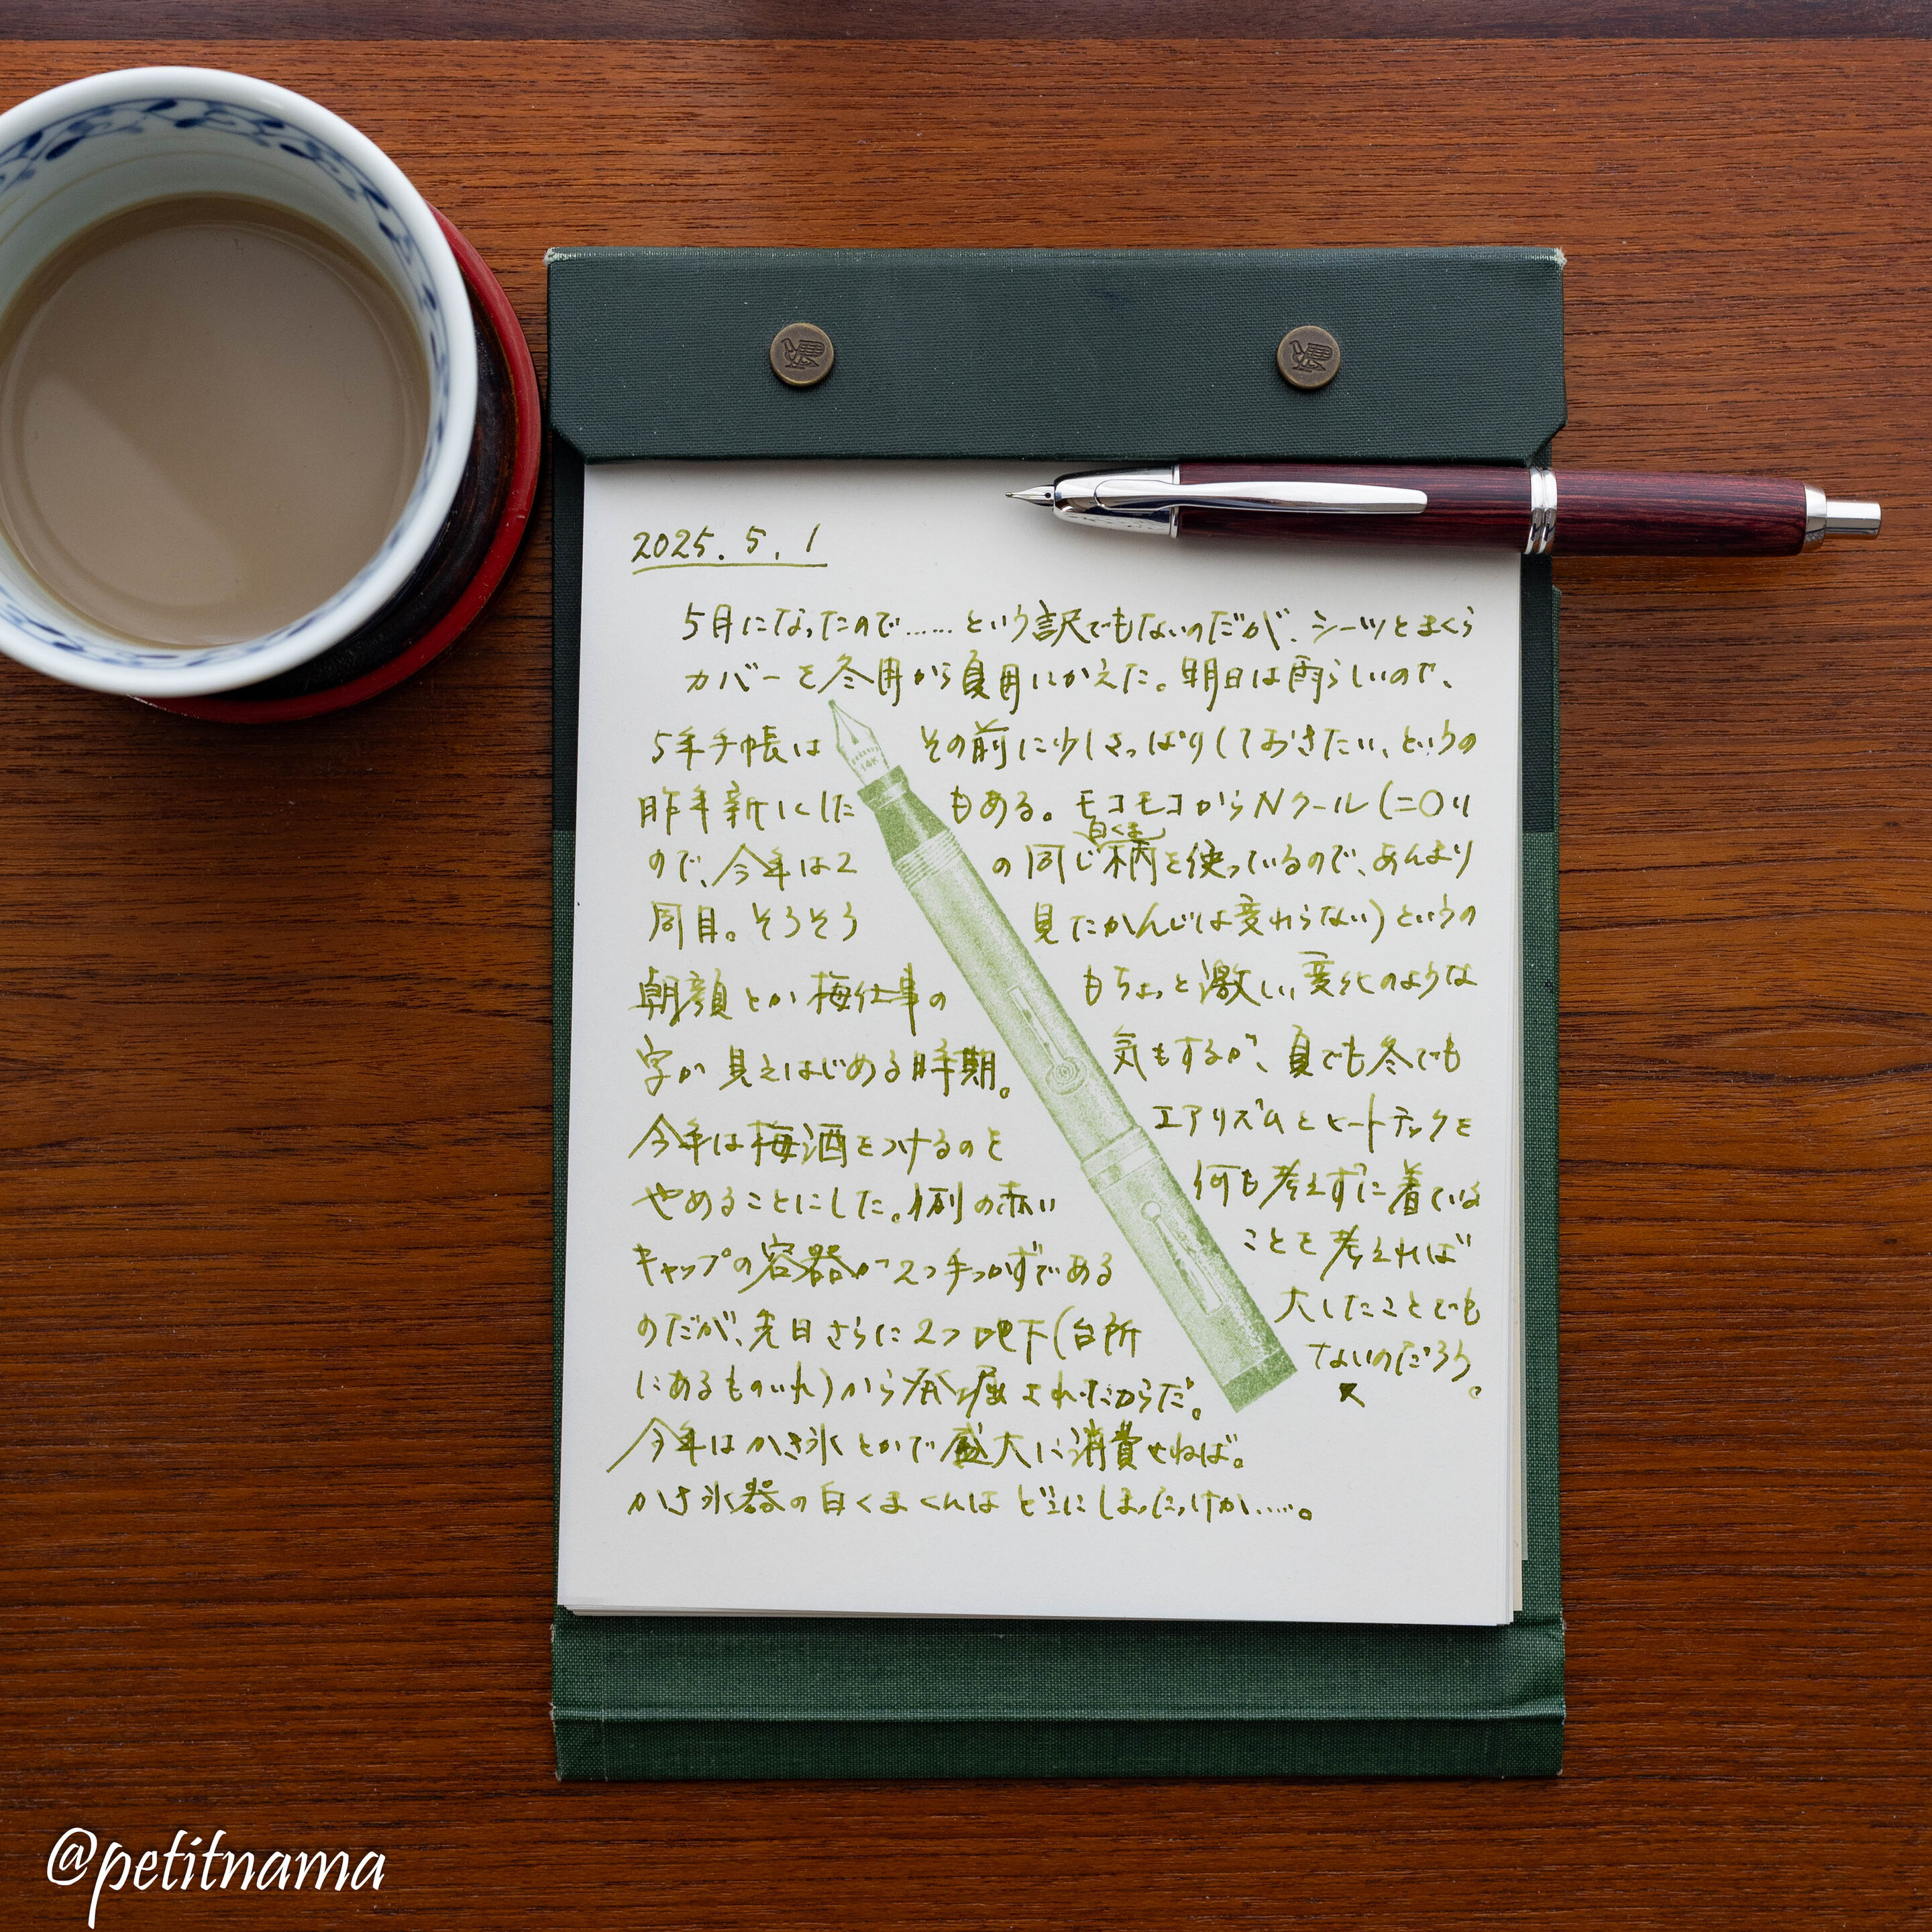 2025.5.1
5月になったので……という訳でもないのだが、シーツとまくら
カバーを冬用から夏用にかえた。明日は雨らしいので、
その前に少しさっぱりしておきたい、というの
もある。モコモコからNクール(ニ〇リ
の同じ白くま柄を使っているので、あんまり
見たかんじは変わらない)というの
もちょっと激しい変化のような
気もするが、夏でも冬でも
エアリズムとヒートテックを
何も考えずに着ている
ことを考えれば
大したことでも
ないのだろう。
5年手帳は
昨年新しくした
ので、今年は2
周目。そろそろ
朝顔とか梅仕事の
字が見えはじめる時期。
今年は梅酒をつけるのを
やめることにした。例の赤い
キャップの容器が2つ手つかずである
のだが、先日さらに2つ地下(台所
にあるものいれ)から発掘されたからだ。
今年はかき氷とかで盛大に消費せねば。
かき氷器の白くまくんはどこにしまったっけか……。
14K
@petitnama